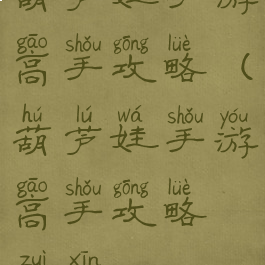 葫芦娃手游
gāo shǒu gōng lüè
高手攻略（
hú lú wá shǒu yóu
葫芦娃手游
gāo shǒu gōng lüè
高手攻略
zuì xīn